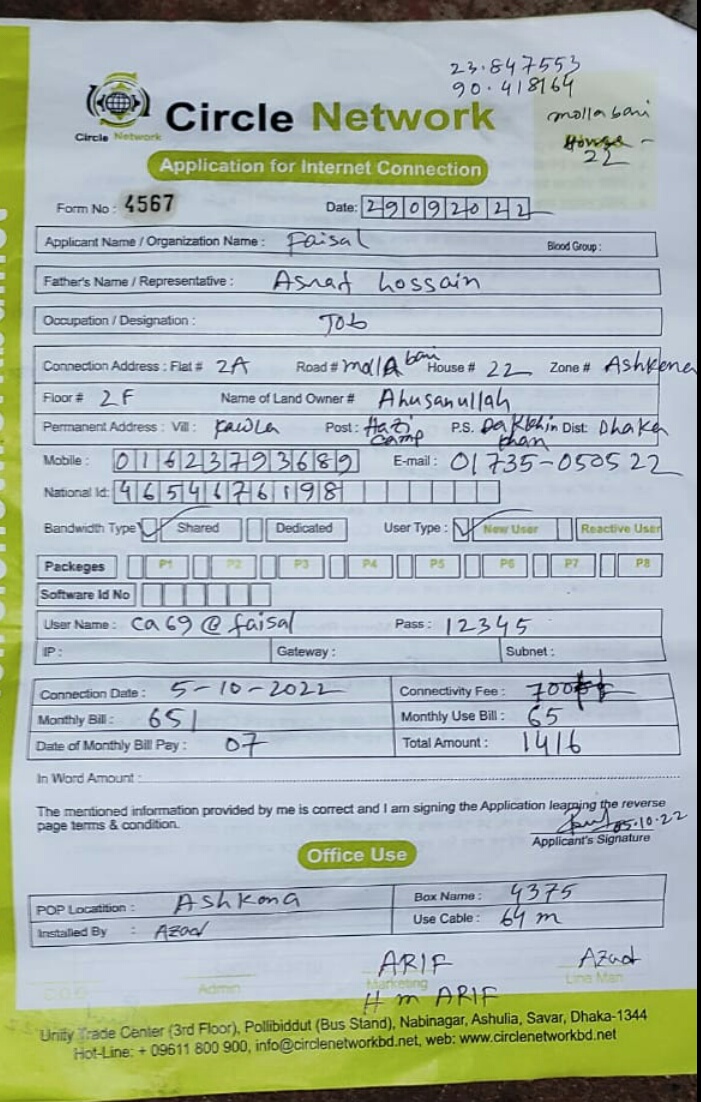 23.847553
90.418164
molla bari
House -
22
Circle Network
Circle Network
Application for Internet Connection
Form No : 4567 Date: 29092022
Applicant Name / Organization Name : Faisal Blood Group :
Father's Name / Representative : Asraf Hossain
Occupation / Designation : Job
Connection Address : Flat # 2A Road # mollA bari House # 22 Zone # Ashkona
Floor # 2F Name of Land Owner # Ahusanullah
Permanent Address : Vill : Kawla Post : Hazi Camp P.S. Dakkhin khan Dist: Dhaka
Mobile : 01623793689 E-mail : 01735-050522
National Id: 4654676198
Bandwidth Type Shared Dedicated User Type : New User Reactive User
Packeges P1 P2 P3 P4 P5 P6 P7 P8
Software Id No
User Name : ca69@faisal Pass : 12345
IP : Gateway : Subnet :
Connection Date : 5-10-2022 Connectivity Fee : 700
Monthly Bill : 651 Monthly Use Bill : 65
Date of Monthly Bill Pay : 07 Total Amount : 1416
In Word Amount :
The mentioned information provided by me is correct and I am signing the Application learning the reverse
page terms & condition.
05.10.22
Applicant's Signature
Office Use
POP Locatition : Ashkona Box Name : 4375
Installed By : Azad Use Cable : 64 m
ARIF Azad
C.O.O Admin Marketing Line Man
H m ARIF
Unity Trade Center (3rd Floor), Pollibiddut (Bus Stand), Nabinagar, Ashulia, Savar, Dhaka-1344
Hot-Line: + 09611 800 900, info@circlenetworkbd.net, web: www.circlenetworkbd.net